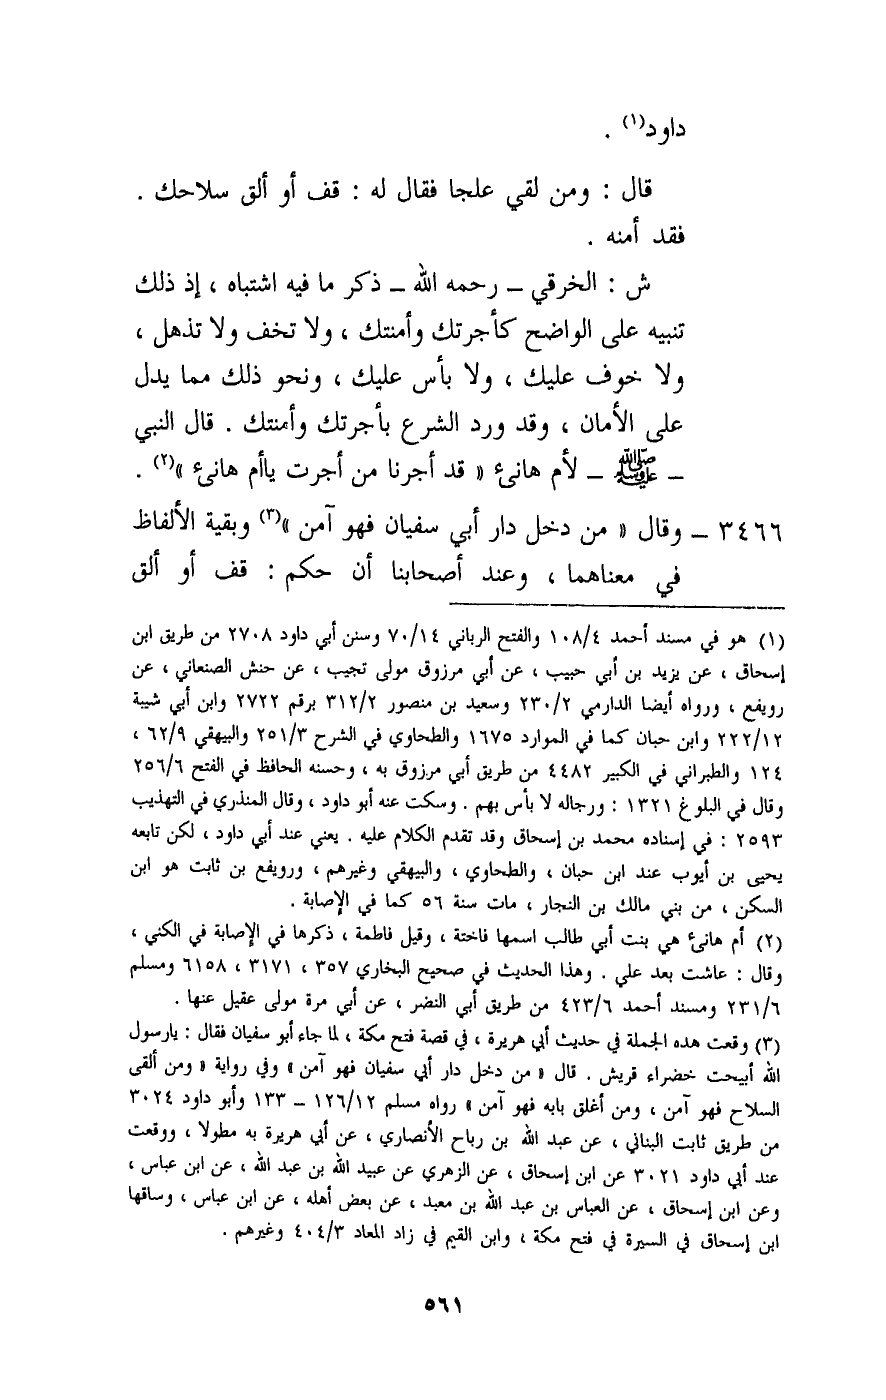 داود(١) .
قال : ومن لقي علجا فقال له : قف أو ألق سلاحك .
فقد أمنه .
ش : الخرقي ــ رحمه الله ــ ذكر ما فيه اشتباه ، إذ ذلك
تنبيه على الواضح كأجرتك وأمنتك ، ولا تخف ولا تذهل ،
ولا خوف عليك ، ولا بأس عليك ، ونحو ذلك مما يدل
على الأمان ، وقد ورد الشرع بأجرتك وأمنتك . قال النبي
ــ ﷺ ــ لأم هانئ « قد أجرنا من أجرت ياأم هانئ »(٢) .
٣٤٦٦ ــ وقال « من دخل دار أبي سفيان فهو آمن »(٣) وبقية الألفاظ
في معناهما ، وعند أصحابنا أن حكم : قف أو ألق
(١) هو في مسند أحمد ١٠٨/٤ والفتح الرباني ٧٠/١٤ وسنن أبي داود ٢٧٠٨ من طريق ابن
إسحاق ، عن يزيد بن أبي حبيب ، عن أبي مرزوق مولى تجيب ، عن حنش الصنعاني ، عن
رويفع ، ورواه أيضا الدارمي ٢٣٠/٢ وسعيد بن منصور ٣١٢/٢ برقم ٢٧٢٢ وابن أبي شيبة
٢٢٢/١٢ وابن حبان كما في الموارد ١٦٧٥ والطحاوي في الشرح ٢٥١/٣ والبيهقي ٦٢/٩ ،
١٢٤ والطبراني في الكبير ٤٤٨٢ من طريق أبي مرزوق به ، وحسنه الحافظ في الفتح ٢٥٦/٦
وقال في البلوغ ١٣٢١ : ورجاله لا بأس بهم . وسكت عنه أبو داود ، وقال المنذري في التهذيب
٢٥٩٣ : في إسناده محمد بن إسحاق وقد تقدم الكلام عليه . يعني عند أبي داود ، لكن تابعه
يحيى بن أيوب عند ابن حبان ، والطحاوي ، والبيهقي وغيرهم ، ورويفع بن ثابت هو ابن
السكن ، من بني مالك بن النجار ، مات سنة ٥٦ كما في الإصابة .
(٢) أم هانئ هي بنت أبي طالب اسمها فاختة ، وقيل فاطمة ، ذكرها في الإصابة في الكنى ،
وقال : عاشت بعد علي . وهذا الحديث في صحيح البخاري ٣٥٧ ، ٣١٧١ ، ٦١٥٨ ومسلم
٢٣١/٦ ومسند أحمد ٤٢٣/٦ من طريق أبي النضر ، عن أبي مرة مولى عقيل عنها .
(٣) وقعت هذه الجملة في حديث أبي هريرة ، في قصة فتح مكة ، لما جاء أبو سفيان فقال : يارسول
الله أبيحت خضراء قريش . قال « من دخل دار أبي سفيان فهو آمن » وفي رواية « ومن ألقى
السلاح فهو آمن ، ومن أغلق بابه فهو آمن » رواه مسلم ١٢٦/١٢ ــ ١٣٣ وأبو داود ٣٠٢٤
من طريق ثابت البناني ، عن عبد الله بن رباح الأنصاري ، عن أبي هريرة به مطولا ، ووقعت
عند أبي داود ٣٠٢١ عن ابن إسحاق ، عن الزهري عن عبيد الله بن عبد الله ، عن ابن عباس ،
وعن ابن إسحاق ، عن العباس بن عبد الله بن معبد ، عن بعض أهله ، عن ابن عباس ، وساقها
ابن إسحاق في السيرة في فتح مكة ، وابن القيم في زاد المعاد ٤٠٤/٣ وغيرهم .
٥٦١